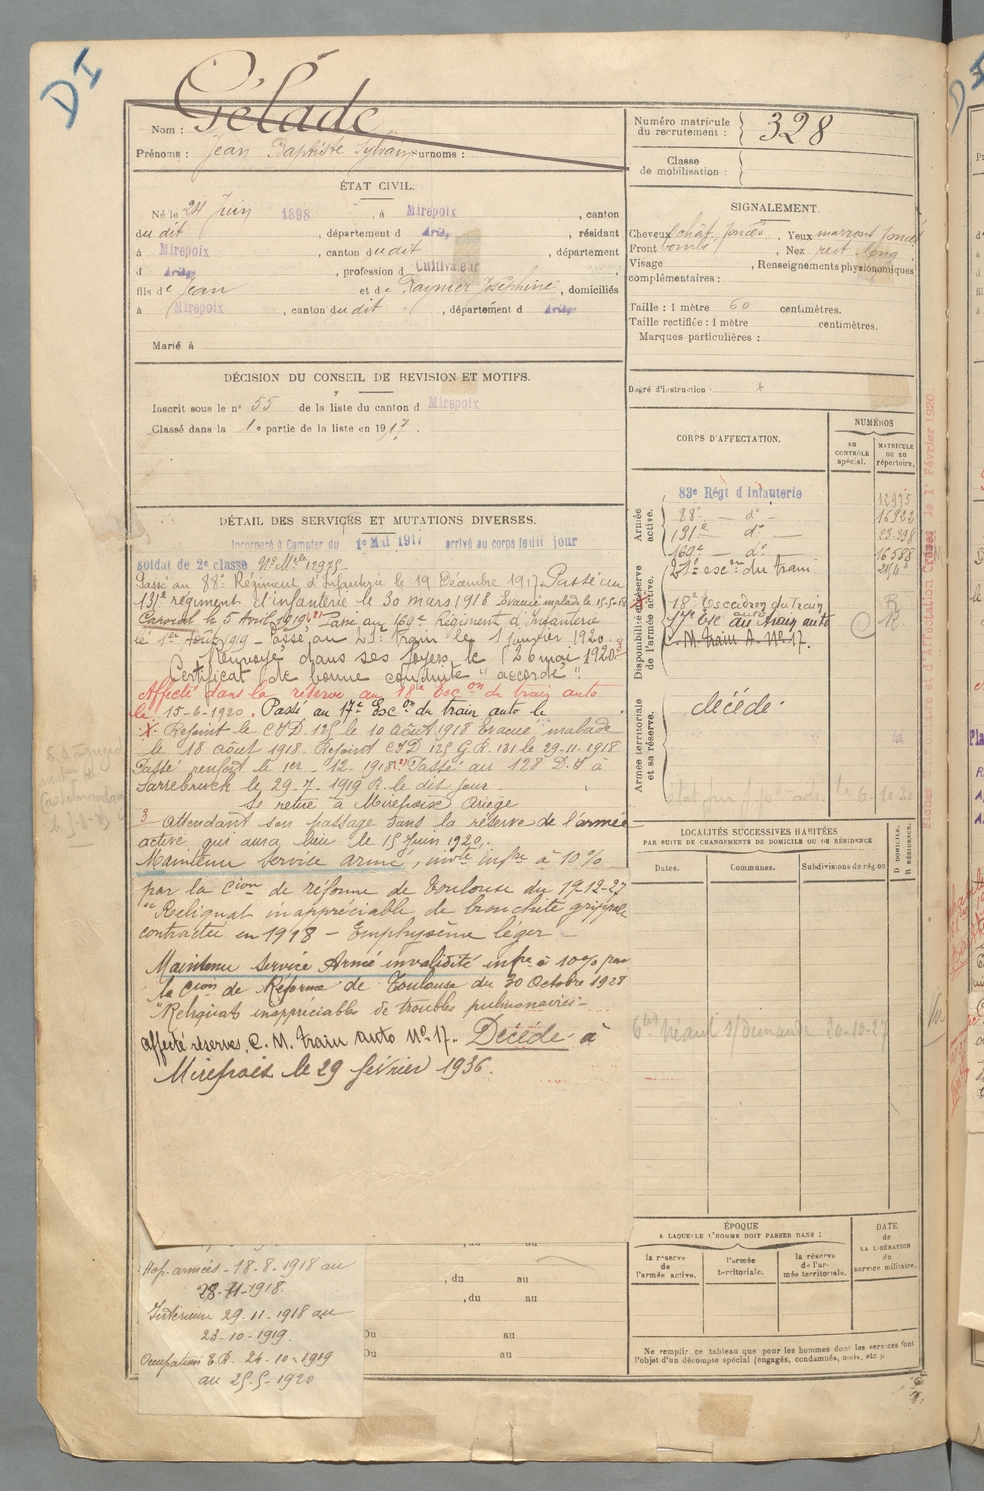 DI
Nom : Gélade
Prénoms : Jean Baptiste Sylvain surnoms :
Numéro matricule du recrutement : 328
Classe de mobilisation :
ÉTAT CIVIL.
Né le 24 Juin 1898, à Mirepoix, canton
du dit, département d Ariège, résidant
à Mirepoix, canton du dit, département
d Ariège, profession d Cultivateur
fils de Jean et de Raynier Joséphine, domiciliés
à Mirepoix, canton du dit, département d Ariège
Marié à
SIGNALEMENT.
Cheveux chât. foncés. Yeux marrons foncés
Front bombé, Nez rect. long
Visage, Renseignements physionomiques
complémentaires :
Taille : 1 mètre 60 centimètres.
Taille rectifiée : 1 mètre centimètres.
Marques particulières :
Degré d'instruction :
DÉCISION DU CONSEIL DE REVISION ET MOTIFS.
Inscrit sous le n° 55 de la liste du canton d Mirepoix
Classé dans la 1e partie de la liste en 1917.
CORPS D'AFFECTATION.
NUMÉROS
au CONTRÔLE spécial.
MATRICULE OU AU répertoire.
Armée active.
83e Régt d'infanterie 12975
88e — do 16922
131e — do
169e — do 16588
Disponibilité et réserve de l'armée active.
21e escon du train
18e Escadron du train R
17e Esc on du train auto R.
C. M. train A. No 17.
Armée territoriale et sa réserve.
décédé.
DÉTAIL DES SERVICES ET MUTATIONS DIVERSES.
Incorporé à Compter du 1e Mai 1917 arrivé au corps ledit jour
soldat de 2e classe No Mle 12975
Passé au 88e Régiment d'Infanterie le 19 Décembre 1917. Passé au
131e régiment d'infanterie le 30 mars 1918 Evacué malade le 15-5-18
Caporal le 5 Avril 1919. Passé au 169e Régiment d'Infanterie
le 1er Août 1919 - Passé au 21e train le 1 Janvier 1920.
Renvoyé dans ses foyers le 26 mai 1920.
Certificat de bonne conduite "accordé".
Affecté dans la réserve au 18e Esc on du train auto
le 15-6-1920. Passé au 17e Esc on du train auto le
X. Rejoint le C.I.D. 125 le 10 Août 1918 Evacué malade
le 18 août 1918. Rejoint C.I.D 125 G.R. 131 le 29-11-1918
Passé renfort le 1er - 12-1918 Passé au 128e D.I à
Sarrebruck le 29-7-1919 R. le dit jour
Se retire à Mirepoix Ariège
3 Attendant son passage dans la réserve de l'armée
active qui aura lieu le 15 Juin 1920.
Maintenu service armé, invté infre à 10%
par la Cion de réforme de Toulouse du 19-12-27
"Reliquat inappréciable de bronchite grippale
contractée en 1918 - Emphysème léger -
Maintenu Service Armé invalidité infre à 10% par
la Cion de Réforme de Toulouse du 30 Octobre 1928
"Reliquat inappréciables de troubles pulmonaires -
affecté réserves. C. M. train auto No 17. Décédé à
Mirepoix le 29 février 1936.
LOCALITÉS SUCCESSIVES HABITÉES
PAR SUITE DE CHANGEMENTS DE DOMICILE OU DE RÉSIDENCE
Dates.
Communes.
Subdivisions de région
D DOMICILE.
R RÉSIDENCE.
ÉPOQUE
A LAQUELLE L'HOMME DOIT PASSER DANS :
la réserve de l'armée active.
l'armée territoriale.
la réserve de l'armée territoriale.
DATE de LA LIBÉRATION du service militaire.
Ne remplir ce tableau que pour les hommes dont les services font
l'objet d'un décompte spécial (engagés, condamnés, omis, etc.).
, du au
, du au
Du au
Du au
Hop. armées - 18-8-1918 au
28-11-1918.
Intérieur 29-11-1918 au
23-10-1919.
Occupations E.R. 24-10-1919
au 25-5-1920